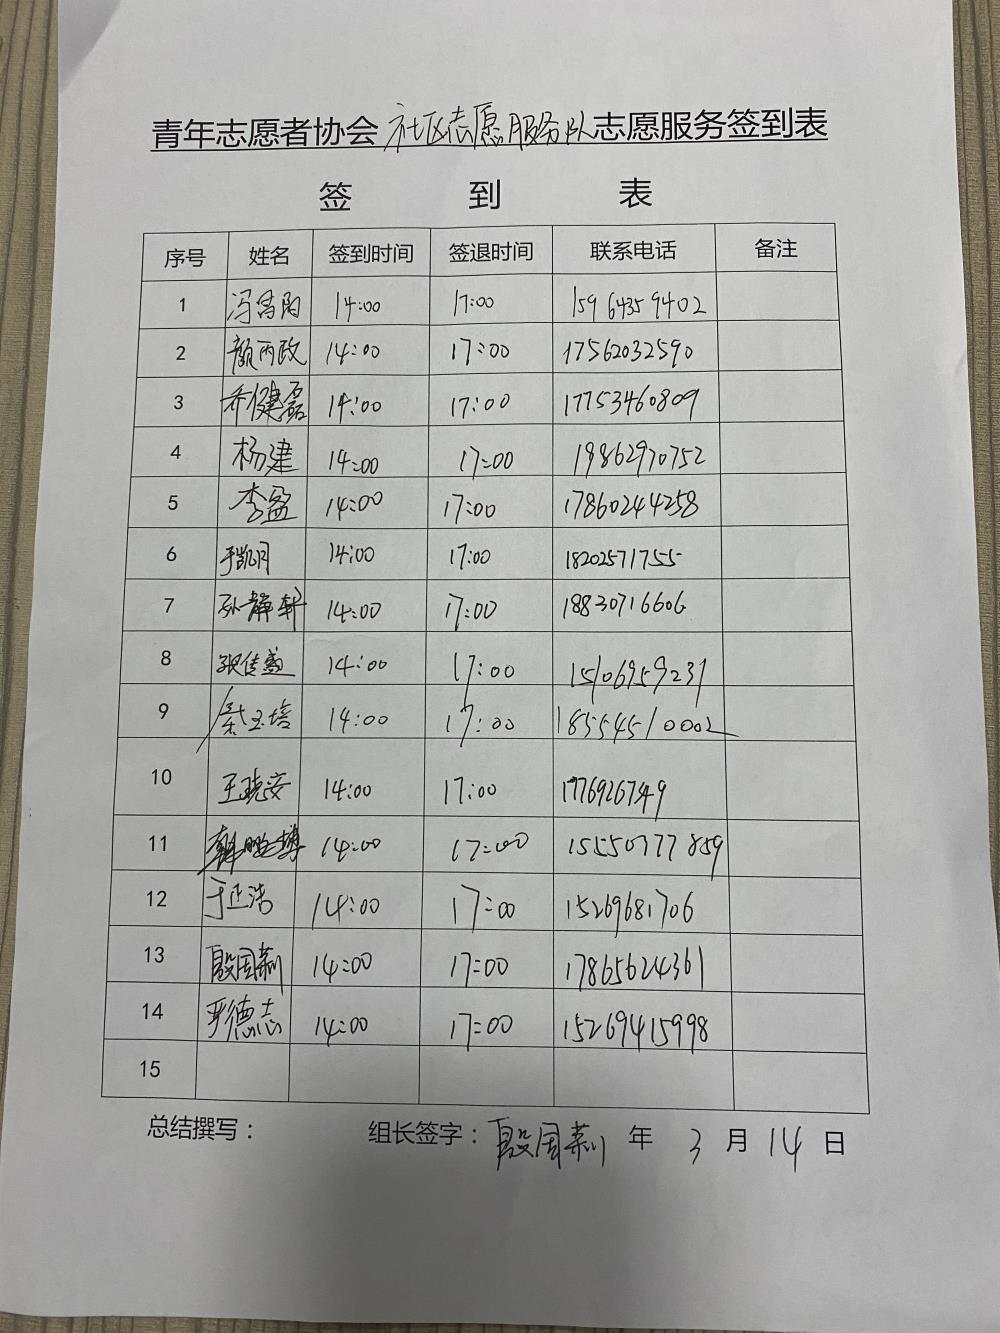 青年志愿者协会社区志愿服务队志愿服务签到表
签 到 表
序号 姓名 签到时间 签退时间 联系电话 备注
1 冯昌阳 14:00 17:00 15964359402
2 颜丙政 14:00 17:00 17562032590
3 乔健磊 14:00 17:00 17753460809
4 杨建 14:00 17:00 19862970752
5 李盈 14:00 17:00 17860244258
6 于凯月 14:00 17:00 18202571755
7 孙静轩 14:00 17:00 18830716606
8 张佳盛 14:00 17:00 15106959231
9 秦玉培 14:00 17:00 18554510002
10 王晓安 14:00 17:00
11 韩鹏博 14:00 17:00 15550777859
12 于正浩 14:00 17:00 15269681706
13 殷国荞 14:00 17:00 17865624361
14 严德志 14:00 17:00 15269415998
15
总结撰写： 组长签字：殷国 年 3 月 14 日